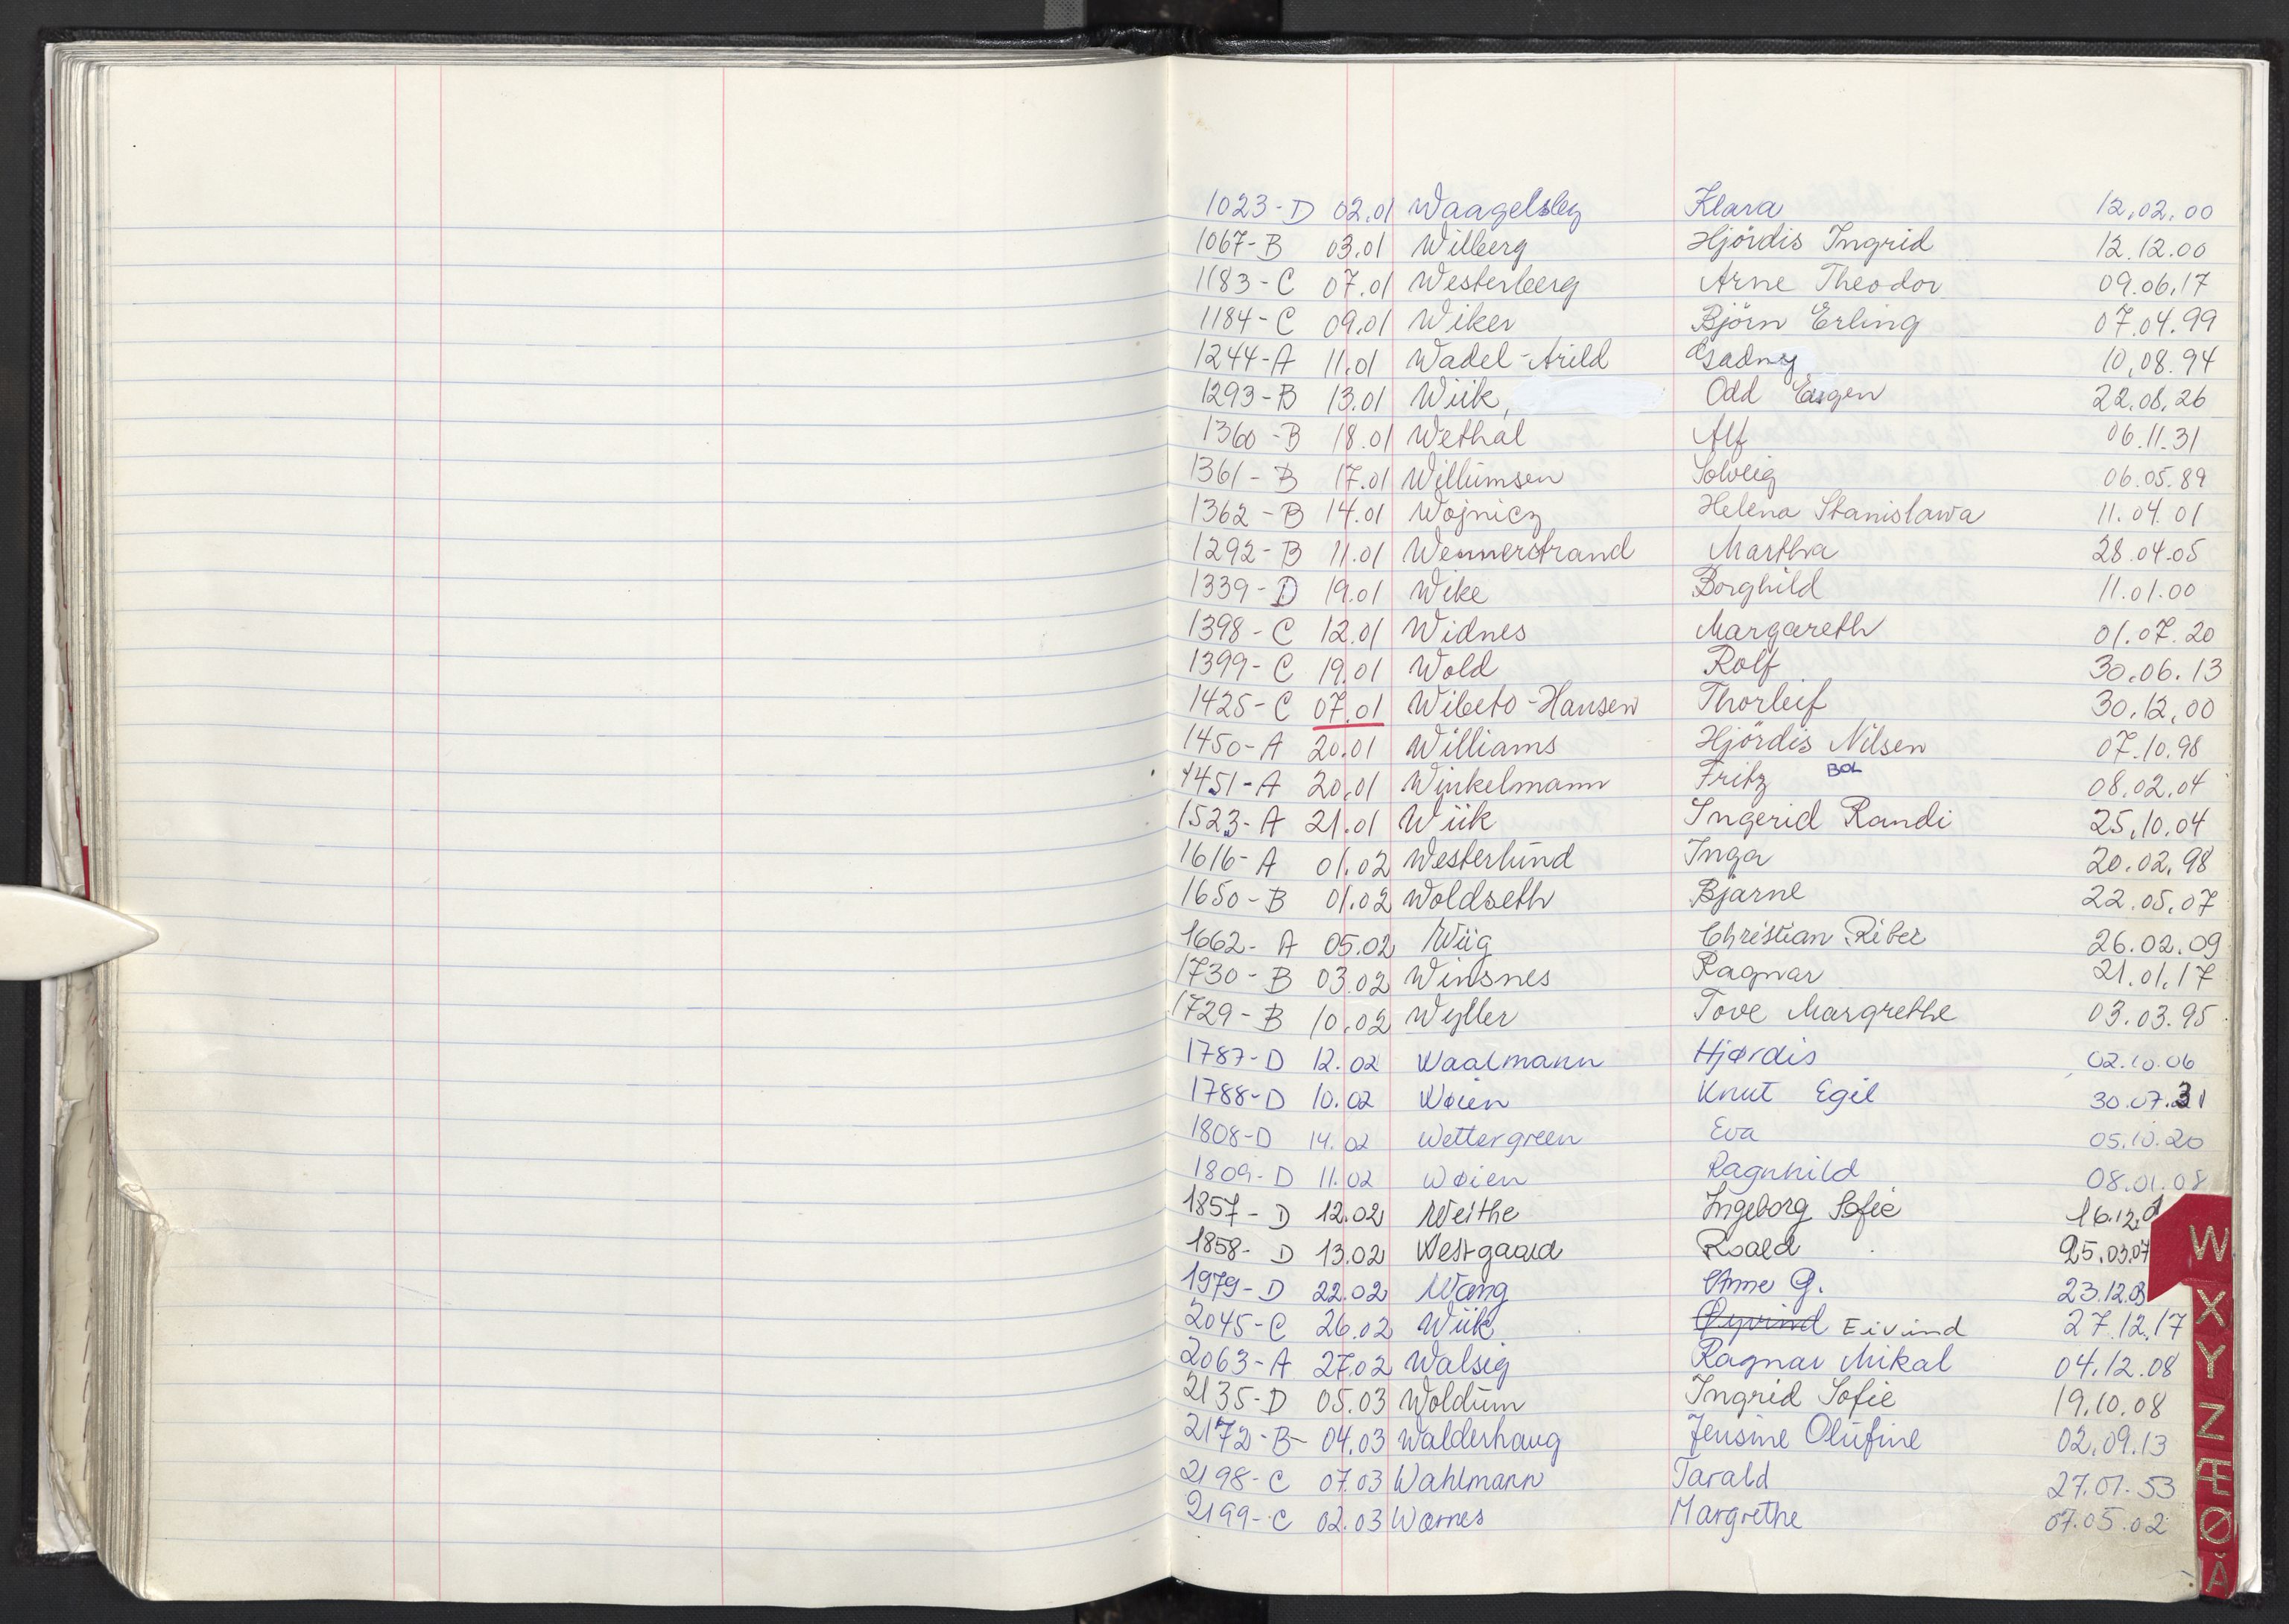 1023-D 02.01 Waagelsby Klara 12.02.00
1067-B 03.01 Wilberg Hjördis Ingrid 12.12.00
1183-C 07.01 Westerberg Arne Theodor 09.06.17
1184-C 09.01 Wiker Björn Erling 07.04.99
1244-A 11.01 Wadel-Arild 10.08.94
1293-B 13.01 Wiik, Odd 22.08.26
1360-B 18.01 Wethal Alf 06.11.31
1361-B 17.01 Willumsen Solveig 06.05.89
1362-B 14.01 Wojnicz Helena Stanislawa 11.04.01
1292-B 11.01 Wennerstrand Martha 28.04.05
1339-D 19.01 Wike Borghild 11.01.00
1398-C 12.01 Widnes Margareth 01.07.20
1399-C 19.01 Wold Rolf 30.06.13
1425-C 07.01 Wibeto-Hansen Thorleif 30.12.00
1450-A 20.01 Williams Hjördis Nilsen 07.10.98
1451-A 20.01 Winkelmann Fritz BOL 08.02.04
1523-A 21.01 Wiik Ingerid Randi 25.10.04
1616-A 01.02 Westerlund Inga 20.02.98
1650-B 01.02 Woldseth Bjarne 22.05.07
1662-A 05.02 Wiig Christian Riber 26.02.09
1730-B 03.02 Winsnes Ragnar 21.01.17
1729-B 10.02 Wyller Tove Margrethe 03.03.95
1787-D 12.02 Waalmann Hjørdis 02.10.06
1788-D 10.02 Wøien Knut Egil 30.07.31
1808-D 14.02 Wettergreen Eva 05.10.20
1809-D 11.02 Wøien Ragnhild 08.01.08
1857-D 12.02 Weithe Ingeborg Sofie 16.12.0
1858-D 13.02 Westgaard Roald 25.03.07
1979-D 22.02 Wang Anne G. 23.12.03
2045-C 26.02 Wiik Øyvind Eivind 27.12.17
2063-A 27.02 Walsig Ragnar Mikal 04.12.08
2135-D 05.03 Woldum Ingrid Sofie 19.10.08
2172-B- 04.03 Walderhaug Jensine Olufine 02.09.13
2198-C 07.03 Wahlmann Tarald 27.01.53
2199-C 02.03 Warnes Margrethe 07.05.02
W
X
Y
Z
Æ
Ø
Å